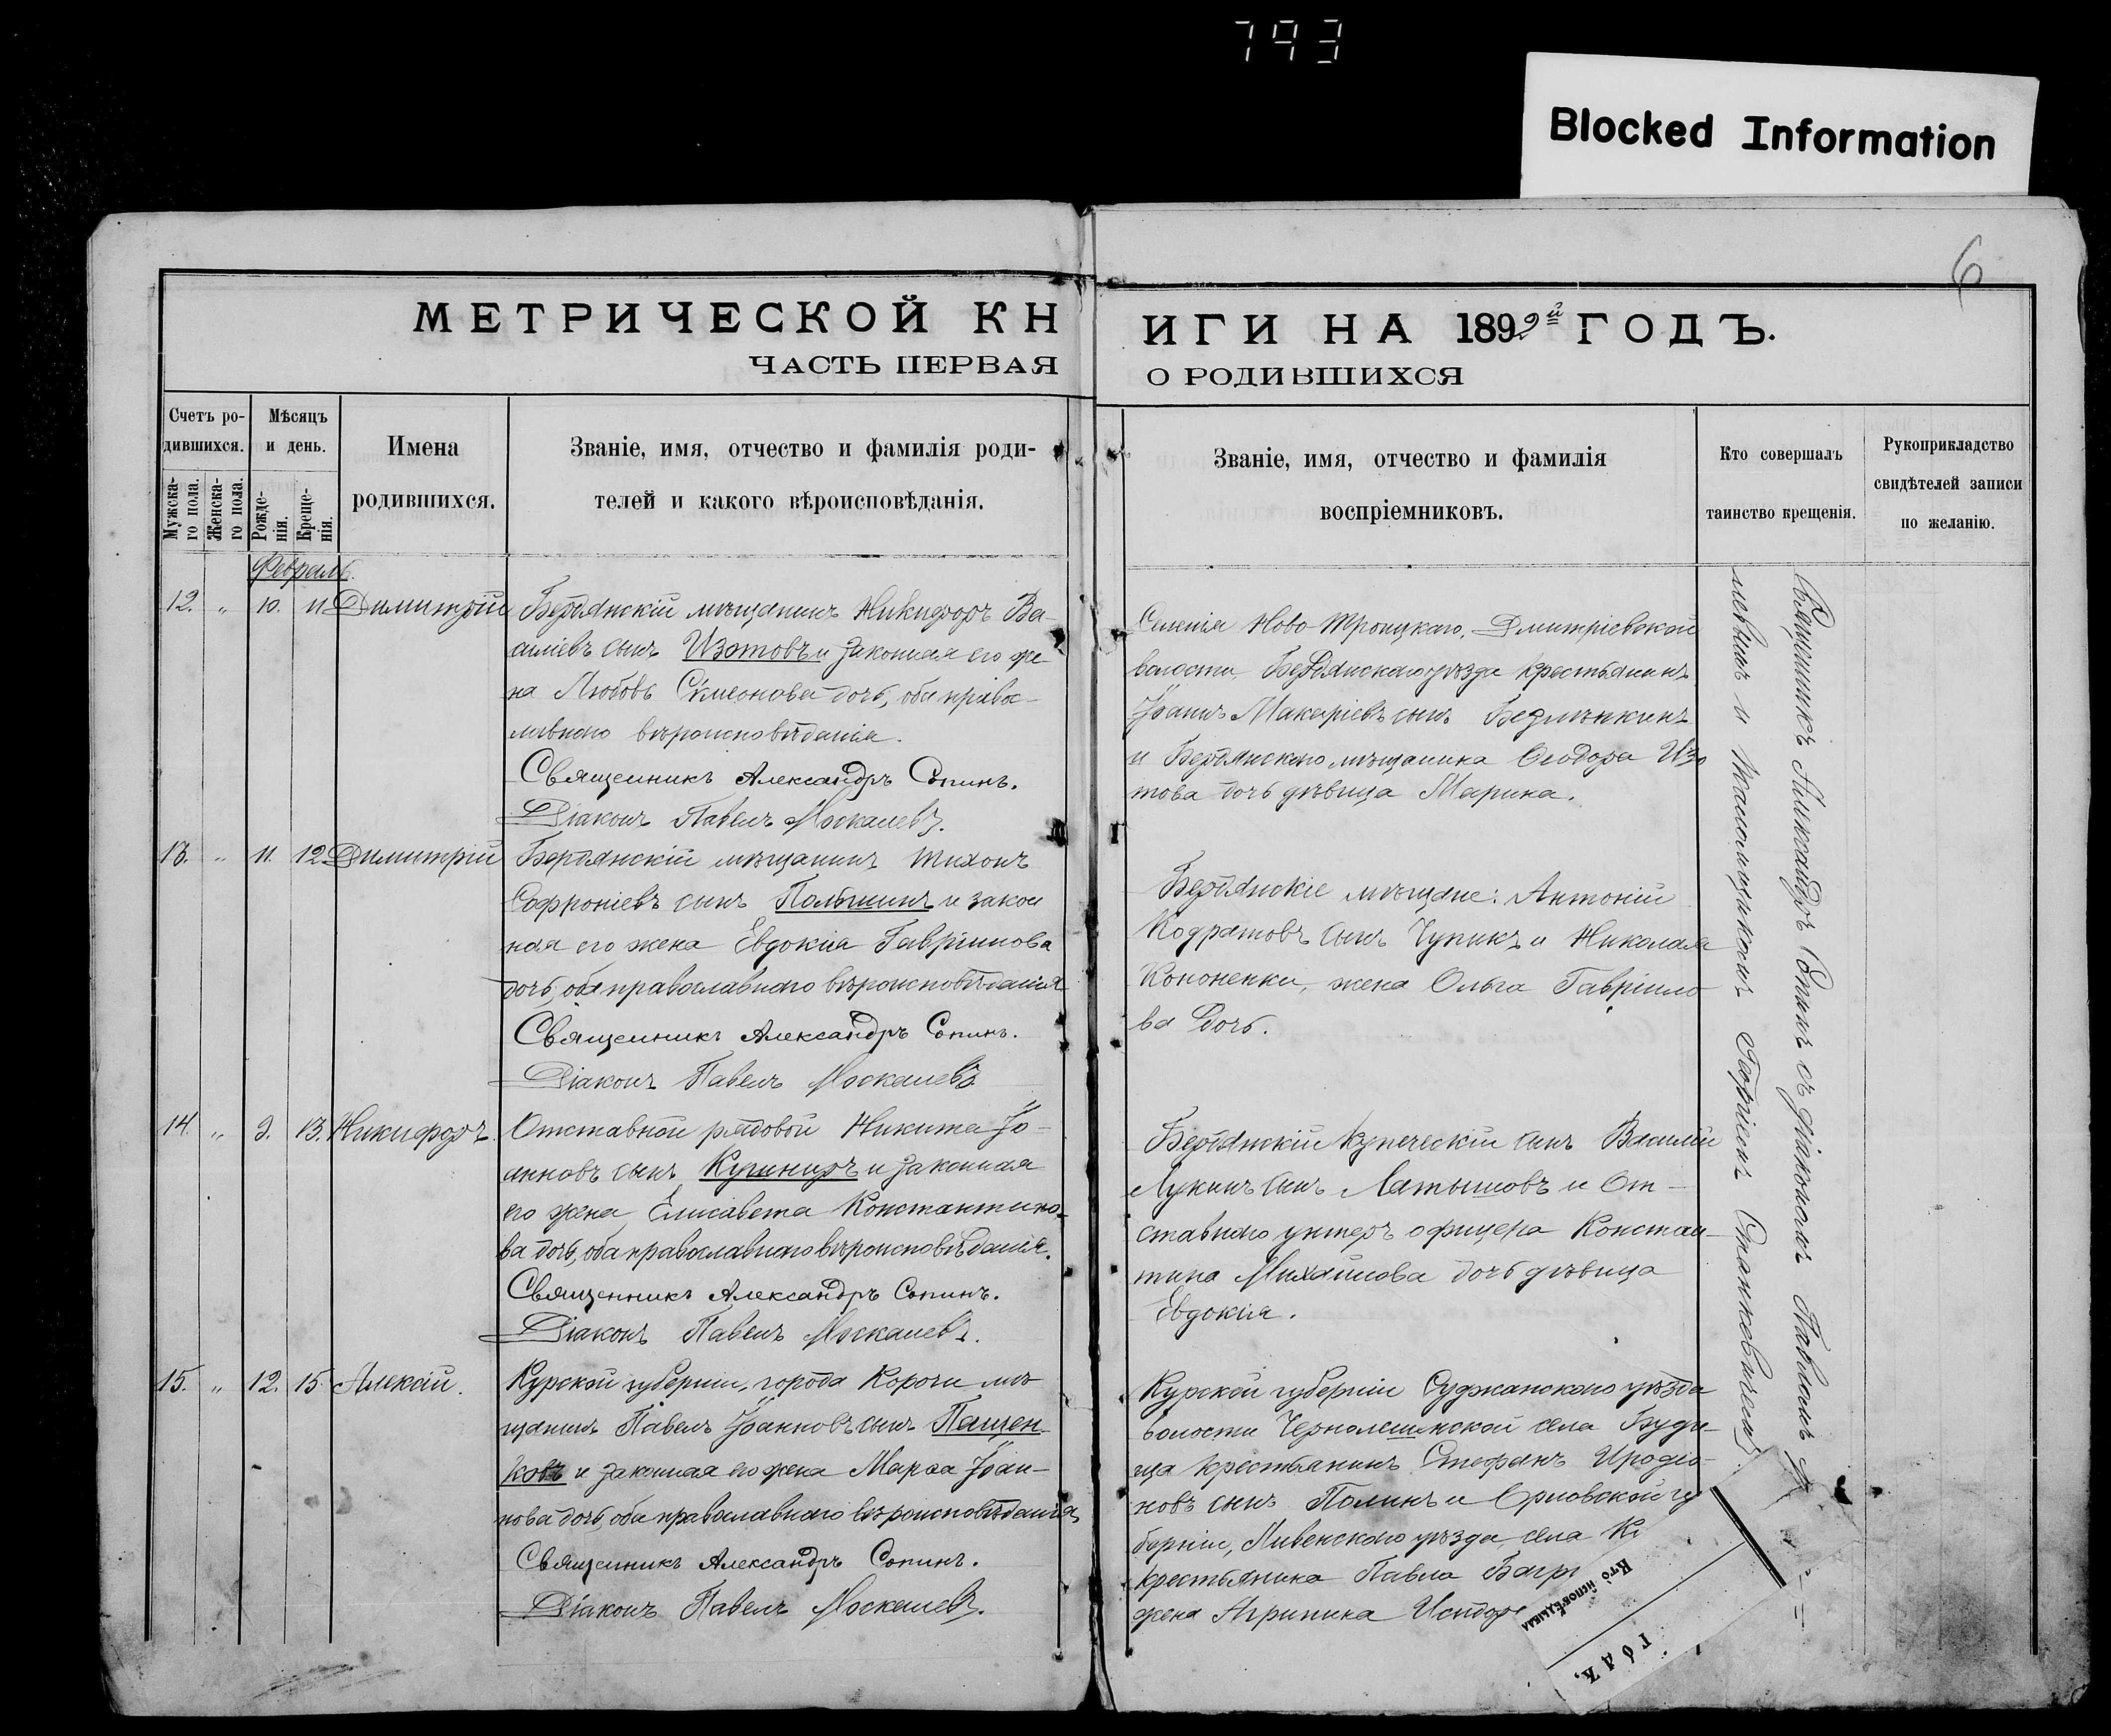 793
Blocked Information
6
МЕТРИЧЕСКОЙ КН
ИГИ НА 1899й ГОДЪ.
ЧАСТЬ ПЕРВАЯ
О РОДИВШИХСЯ
Счетъ ро-
дившихся.
Мужска-
го пола.
Женска-
го пола.
Мѣсяцъ
и день.
Рожде-
нія.
Креще-
нія.
Имена
родившихся.
Званіе, имя, отчество и фамилія роди-
телей и какого вѣроисповѣданія.
Званіе, имя, отчество и фамилія
воспріемниковъ.
Кто совершалъ
таинство крещенія.
Рукоприкладство
свидѣтелей записи
по желанію.
Февраль.
12. " 10. 11 Димитрій
Бердянскій мѣщанинъ Никифоръ Ва-
силіевъ сынъ Изотовъ и законная его же
на Любовь Симеонова дочь, оба правос-
лавного вѣроисповѣданія.
Священникъ Александръ Сопинъ.
Діаконъ Павелъ Москалевъ.
Селенія Ново-Троицкаго, Дмитріевской
волости Бердянскаго уѣзда крестьянинъ
Іоаннъ Макаріевъ сынъ
и Бердянскаго мѣщанина Ѳеодора Изо
това дочь дѣвица Марина.
13. " 11. 12 Димитрій
Бердянскій мѣщанинъ Тихонъ
Софроніевъ сынъ и закон
ная его жена Евдокія Гавріилова
дочь, оба православнаго вѣроисповѣданія
Священникъ Александръ Сопинъ.
Діаконъ Павелъ Москалевъ
Бердянскіе мѣщане: Антоній
Кодратовъ сынъ Чупикъ и Николая
Кононенки, жена Ольга Гавріило
ва дочь.
14. " 9. 13. Никифоръ.
Отставной рядовой Никита Іо-
анновъ сынъ Кушниръ и законная
его жена Елисавета Константино-
ва дочь, оба православнаго вѣроисповѣданія.
Священникъ Александръ Сопинъ.
Діаконъ Павелъ Москалевъ.
Бердянскій купеческій сынъ Василій
Лукинъ сынъ Латышовъ и От-
ставного унтеръ офицера Констан-
тина Михайлова дочь дѣвица
Евдокія.
15. " 12. 15. Алексій.
Курской губерніи, города Корочи мѣ
щанинъ Павелъ Іоанновъ сынъ Пащен-
ковъ и законная его жена Марѳа Іоан-
нова дочь, оба православнаго вѣроисповѣданія,
Священникъ Александръ Сопинъ.
Діаконъ Павелъ Москалевъ.
Курской губерніи Суджанского уѣзда
волости села Буди-
ща крестьянинъ Стефанъ Иродіо-
новъ сынъ Полинъ и Орловской гу
берніи, Ливенского уѣзда, села
крестьянина Павла
жена Агрипина
Священникъ Александръ Сопинъ съ діакономъ Павломъ
и псаломщикомъ Георгіемъ Станкевичемъ.
Кто исповѣдывалъ
ГОДЪ.